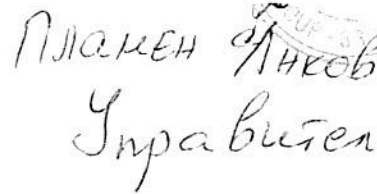 Пламен Янков
Управител